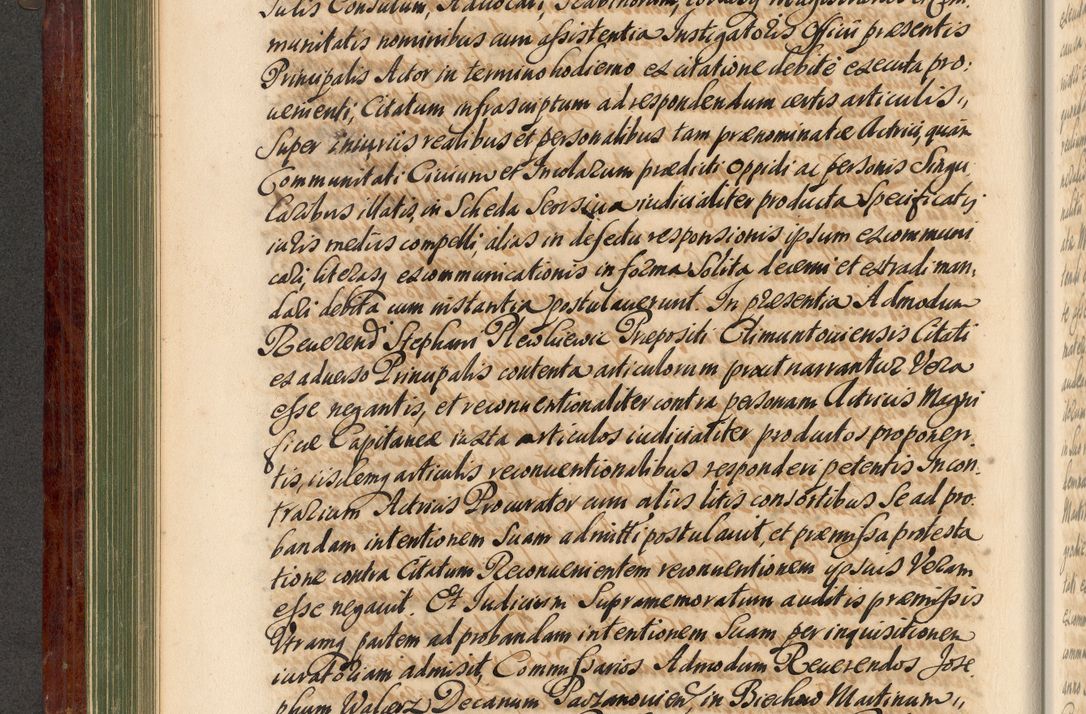 Sulis Consulum, Advocati, Scabinorum, totiusq Magistratus et Com,
munitatis nominibus cum assistentia Instigatoris Officii præsentis
Principalis Actor in termino hodierno ex citatione debitè executa pro,
uenienti, Citatum infrascriptum ad respondendum certis articulis,,
Super Iniuriis realibus et personalibus tam prænominatæ Actrici, quàm
Communitati Ciuium et Incolarum prædicti Oppidi ac personis Singu,
laribus illatis, in Scheda Seorsiua iudicialiter producta Specificatis
iuris mediis compelli, alias in defectu responsionis ipsum excommuni
cari, literasq excommunicationis in forma Solita decerni et extradi man,
dari debita cum instantia postulauerunt. In præsentia Admodum
Reuerend Stephani Plewkiewic Præpositi Climuntouiensis Citati
ex aduerso Principalis contenta articulorum prout narrantur Vera
esse negantis, et reconuentionaliter contra personam Actricis Magni
ficæ Capitaneæ iuxta articulos iudicialiter productos proponen,
tis, iisdemq articulis reconuentionalibus responderi petentis Incon,
trarium Actricis Procurator cum aliis litis consortibus Se ad pro,
bandam intentionem Suam admitti postulauit, et præmissa protesta
tione contra Citatum Reconuenientem reconuentionem ipsius Veram
esse negauit. Et Iudicium Supramemoratum auditis præmissis
Vtramq partem ad probandam intentionem Suam per inquisitionem
iuratoriam admisit, Commissarios Admodum Reuerendos Jose
phum Walerz Decanum Pacanouien, in Biechow Martinum,,